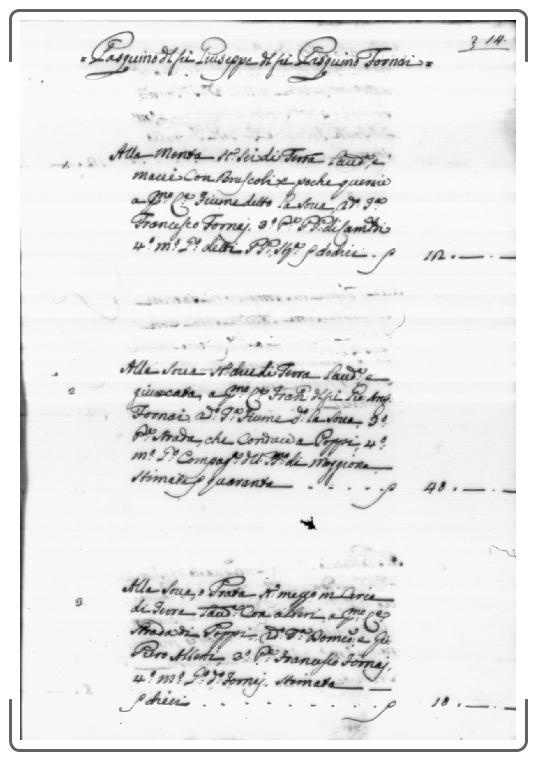 314
= Pasquino di Giuseppe di Pasquino Fornai =
1. Alla Monta N.º sei di Terra Laud.ª, e
macie Con Bruscoli, e poche querce
a p.mo C.e Fiume detto la Sova, 2.º D.º
Francesco Fornaj. 3.º P.e PP. di Camdli
4.º m.º D.º detti PP. dodici . 12 . — . —
2 Alla Sova N.º due di Terra Laud.ª, e
giuncata, a p.mo C.e Fran.º di Ang.
Fornai, 2.º Fiume d.º la Sova, 3.º
P.e Strada, che Conduce a Poppi, 4.º
m.º Compag. di Moggiona
Stimata quaranta . . . . . 40 . — . —
3 Alla Sova, o Prata N.º mezzo in Circa
di Terra Laud.ª Con alberi, a p.mo C.e
Strada di Poppi, 2.º Domco. e
Piero 3.º P.e Francesco Fornaj,
4.º m.º Fornaj. Stimata —
dieci . . . . . . . . 10 . — . —